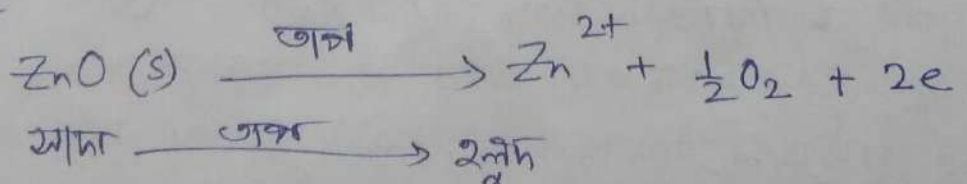 ZnO (s) —তাপ→ Zn²⁺ + ½O₂ + 2e
সাদা —তাপ→ হলুদ